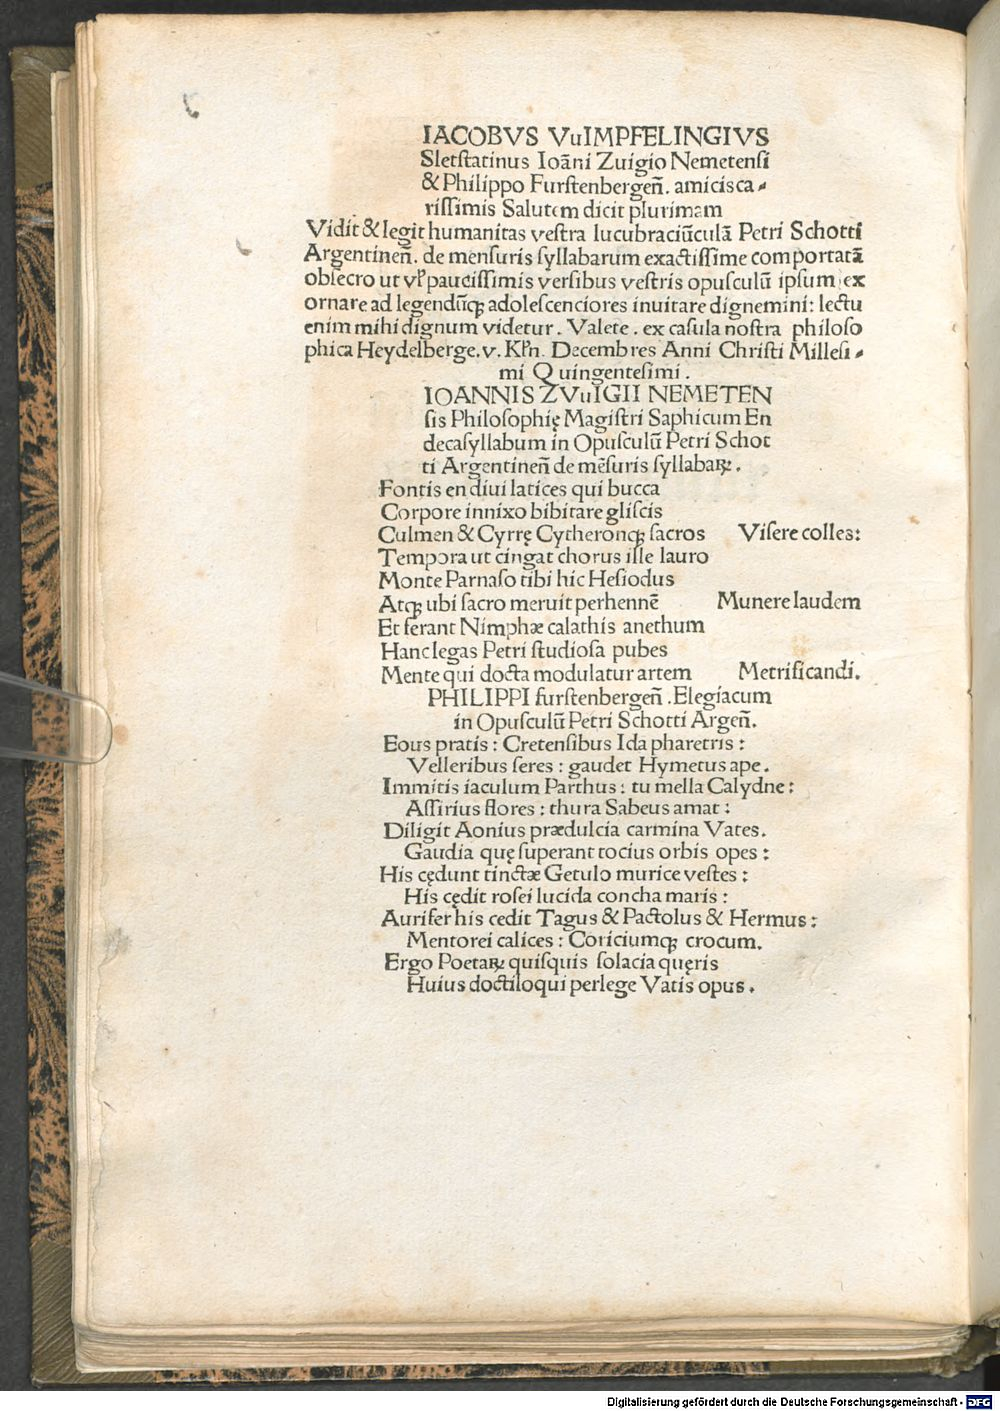 IACOBVS VuIMPFELINGIVS
Sletſtatinus Ioāni Zuigio Nemetenſi
& Philippo Furſtenbergeñ. amicis ca⸗
riſſimis Salutem dicit plurimam
Vidit & legit humanitas veſtra lucubraciūculā Petri Schotti
Argentineñ. de menſuris ſyllabarum exactiſſime comportatā
obſecro ut vł pauciſſimis verſibus veſtris opuſculū ipſum ex
ornare ad legendūꝗ adoleſcenciores inuitare dignemini: lectu
enim mihi dignum videtur. Valete. ex caſula noſtra philoſo
phica Heydelberge. v. Kłn. Decembres Anni Chriſti Milleſi⸗
mi Quingenteſimi.
IOANNIS ZVuIGII NEMETEN
ſis Philoſophię Magiſtri Saphicum En
decaſyllabum in Opuſculū Petri Schot
ti Argentineñ de mēſuris ſyllabaꝝ.
Fontis en diui latices qui bucca
Corpore innixo bibitare gliſcis
Culmen & Cyrrę Cytheronꝗ ſacros Viſere colles:
Tempora ut cingat chorus ille lauro
Monte Parnaſo tibi hic Heſiodus
Atꝗ ubi ſacro meruit perhennē Munere laudem
Et ferant Nimphæ calathis anethum
Hanc legas Petri ſtudioſa pubes
Mente qui docta modulatur artem Metrificandi.
PHILIPPI furſtenbergeñ. Elegiacum
in Opuſculū Petri Schotti Argeñ.
Eous pratis: Cretenſibus Ida pharetris:
Velleribus ſeres: gaudet Hymetus ape.
Immitis iaculum Parthus: tu mella Calydne:
Aſſirius flores: thura Sabeus amat:
Diligit Aonius prædulcia carmina Vates.
Gaudia quę ſuperant tocius orbis opes:
His cędunt tinctæ Getulo murice veſtes:
His cędit roſei lucida concha maris:
Aurifer his cedit Tagus & Pactolus & Hermus:
Mentorei calices: Coriciumꝗ crocum.
Ergo Poetaꝝ quiſquis ſolacia quęris
Huius doctiloqui perlege Vatis opus.
Digitalisierung gefördert durch die Deutsche Forschungsgemeinschaft - DFG